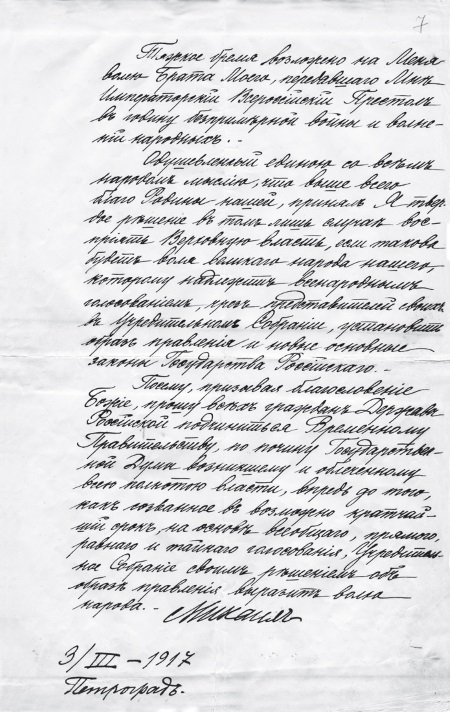 7
Тяжкое бремя возложено на Меня
волею Брата Моего, передавшаго Мнѣ
Императорскій Всероссійскій Престолъ
въ годину безпримѣрной войны и волне-
ній народныхъ.-
Одушевленный единою со всѣмъ
народомъ мыслію, что выше всего
благо Родины нашей, принялъ Я твер-
дое рѣшеніе въ томъ лишь случаѣ вос-
пріять Верховную власть, если такова
будетъ воля великаго народа нашего,
которому надлежитъ всенароднымъ
голосованіемъ, чрезъ представителей своихъ
въ Учредительномъ Собраніи, установить
образъ правленія и новые основные
законы Государства Россійскаго.-
Посему, призывая благословеніе
Божіе, прошу всѣхъ гражданъ Державы
Россійской подчиниться Временному
Правительству, по почину Государствен-
ной Думы возникшему и облеченному
всею полнотою власти, впредь до того,
какъ созванное въ возможно кратчай-
шій срокъ, на основѣ всеобщаго, прямого,
равнаго и тайнаго голосованія, Учредитель-
ное Собраніе своимъ рѣшеніемъ объ
образѣ правленія выразитъ волю
народа.-
Михаилъ
3/III - 1917
Петроградъ.